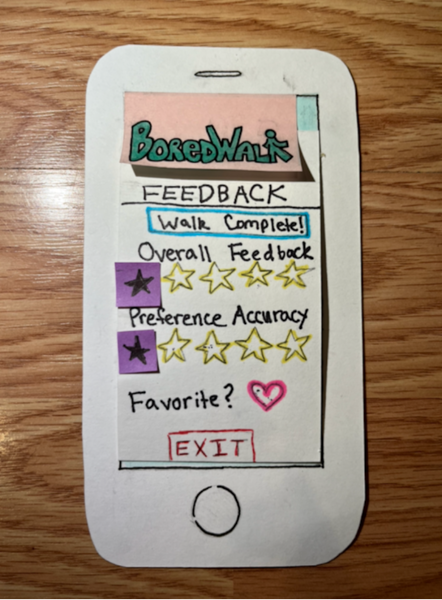 BOREDWALK
FEEDBACK
Walk Complete!
Overall Feedback
Preference Accuracy
Favorite?
EXIT